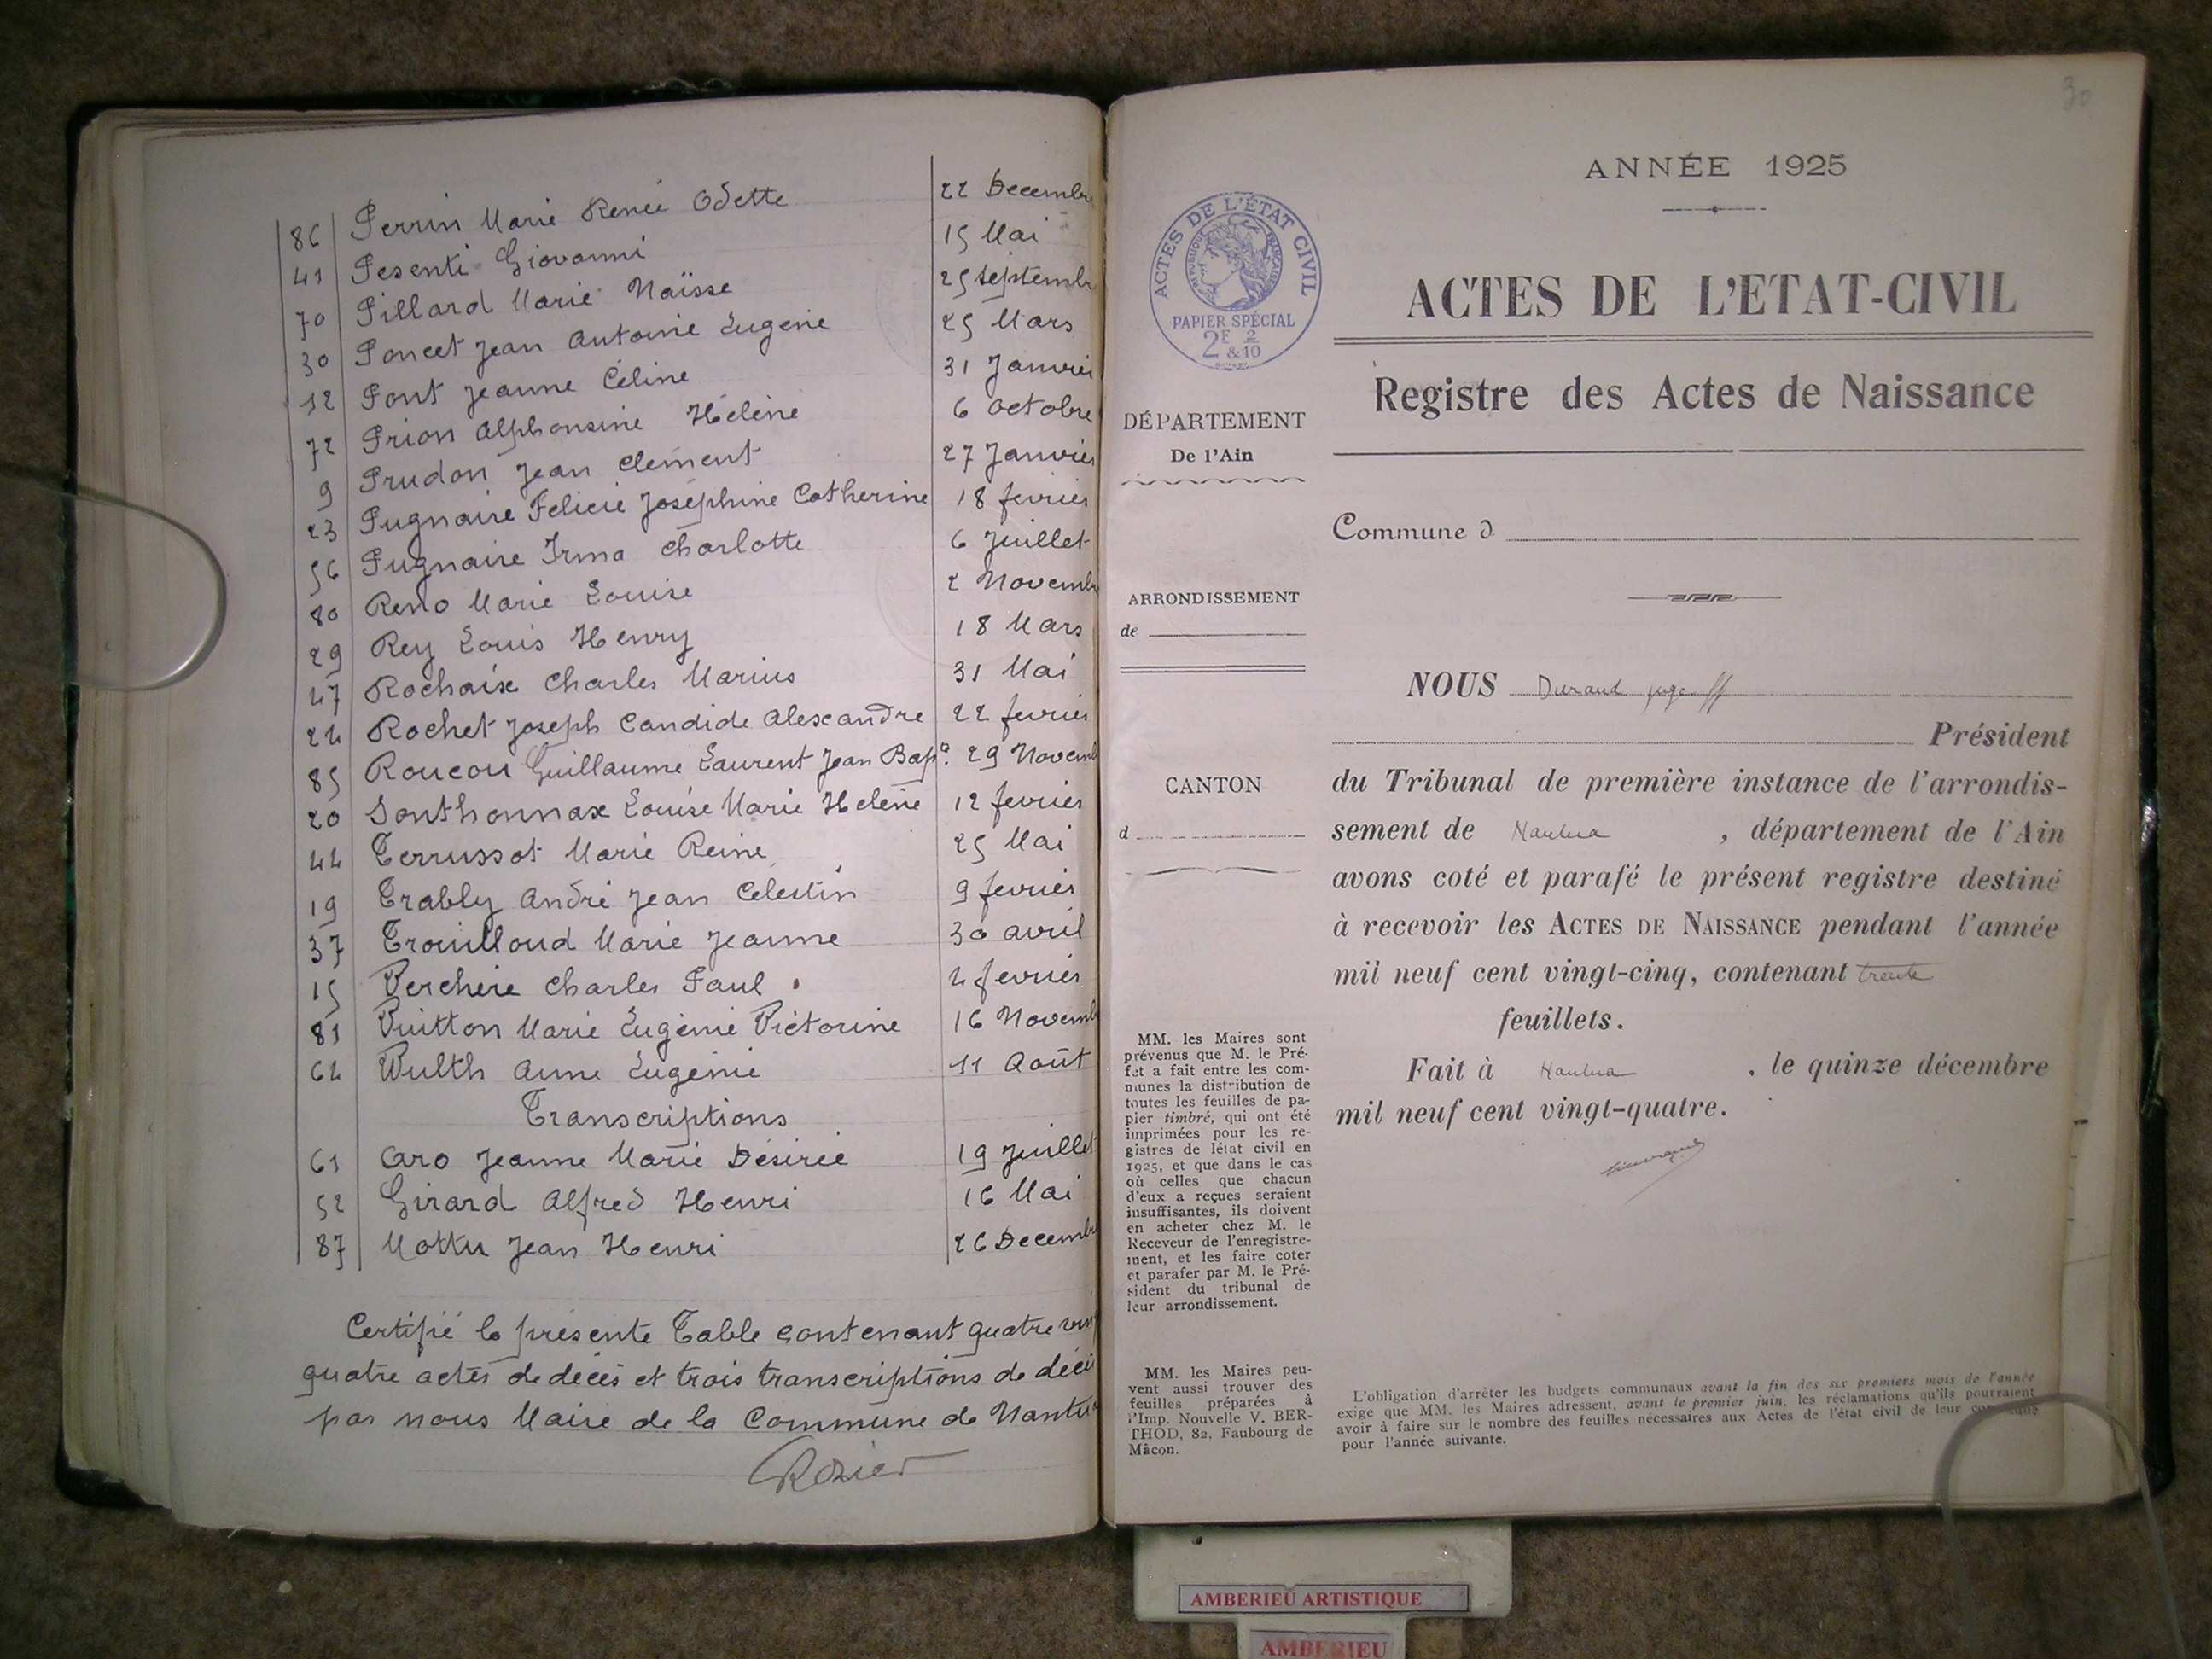 86 Perrin Marie Renée Odette 22 Decembre
41 Pesenti Giovanni 15 Mai
70 Pillard Marie Naïsse 25 septembr
30 Poncet Jean Antoine Eugene 25 Mars
12 Pont Jeanne Céline 31 Janvier
72 Prion Alphonsine Hélène 6 octobre
9 Prudon Jean Clement 27 Janvier
23 Pugnaire Felicie Joséphine Catherine 18 fevrier
56 Pugnaire Irma Charlotte 6 Juillet
80 Reno Marie Louise 2 Novembr
29 Rey Louis Henry 18 Mars
47 Rochaix Charles Marius 31 Mai
24 Rochet Joseph Candide Alexandre 22 fevrier
85 Roucou Guillaume Laurent Jean Bapte. 29 Novemb
20 Sonthonnax Louise Marie Helène 12 fevrier
44 Terrussot Marie Reine 25 Mai
19 Trably André Jean Celestin 9 fevrier
37 Trouilloud Marie Jeanne 30 avril
15 Verchère Charles Paul 4 fevrier
81 Vuitton Marie Eugénie Victorine 16 Novemb
64 Wulth Anne Eugénie 11 Août
Transcriptions
61 Caro Jeanne Marie Désirée 19 Juillet
52 Girard Alfred Henri 16 Mai
87 Mottu Jean Henri 26 Decembr
Certifié la présente Table contenant quatre vingt
quatre actes de décès et trois transcriptions de décè
par nous Maire de la Commune de Nantua
Rosier
30
ANNÉE 1925
ACTES DE L'ETAT-CIVIL
Registre des Actes de Naissance
ACTES DE L'ÉTAT CIVIL
REPUBLIQUE FRANÇAISE
PAPIER SPÉCIAL
2F 2
&10
DÉPARTEMENT
De l'Ain
Commune d
ARRONDISSEMENT
de
CANTON
d
NOUS Durand juge ff
Président
du Tribunal de première instance de l'arrondis-
sement de Nantua , département de l'Ain
avons coté et parafé le présent registre destiné
à recevoir les ACTES DE NAISSANCE pendant l'année
mil neuf cent vingt-cinq, contenant trente
feuillets.
Fait à Nantua , le quinze décembre
mil neuf cent vingt-quatre.
MM. les Maires sont
prévenus que M. le Pré-
fet a fait entre les com-
munes la distribution de
toutes les feuilles de pa-
pier timbré, qui ont été
imprimées pour les re-
gistres de létat civil en
1925, et que dans le cas
où celles que chacun
d'eux a reçues seraient
insuffisantes, ils doivent
en acheter chez M. le
Receveur de l'enregistre-
ment, et les faire coter
et parafer par M. le Pré-
sident du tribunal de
leur arrondissement.
MM. les Maires peu-
vent aussi trouver des
feuilles préparées à
l'Imp. Nouvelle V. BER-
THOD, 82, Faubourg de
Mâcon.
L'obligation d'arrêter les budgets communaux avant la fin des six premiers mois de l'année
exige que MM. les Maires adressent, avant le premier juin, les réclamations qu'ils pourraient
avoir à faire sur le nombre des feuilles nécessaires aux Actes de l'état civil de leur commune
pour l'année suivante.
AMBERIEU ARTISTIQUE
AMBERIEU